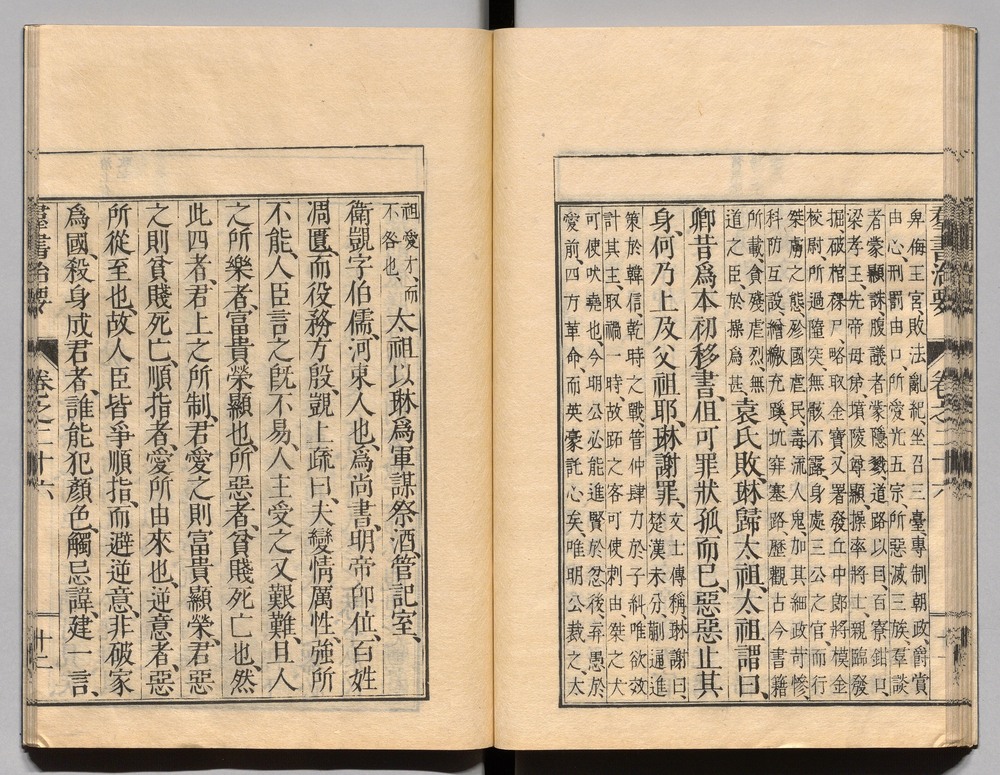 羣書治要 卷之二十六
卑侮王宮、敗法亂紀、坐召三臺專制朝政、爵賞
由心、刑罰由口、所愛光五宗、所惡滅三族、羣談
者蒙顯誅、腹議者蒙隱戮、道路以目、百寮鉗口、
梁孝王、先帝母弟、墳陵尊顯、操率將士、親臨發
掘破棺裸尸、略取金寶、又署發丘中郎將、模金
校尉、所過隳突、無骸不露、身處三公之官、而行
桀虜之態、殄國虐民、毒流人鬼、加其細政苛慘、
科防互設、繒繳充蹊、坑穽塞路、歷觀古今書籍
所載、貪殘虐烈、無
道之臣、於操爲甚、
袁氏敗、琳歸太祖、太祖謂曰、
卿昔爲本初移書、但可罪狀孤而已、惡惡止其
身、何乃上及父祖耶、琳謝罪、
文士傳稱、琳謝曰、
楚漢未分、蒯通進
策於韓信、乾時之戰、管仲肆力於子糾、唯欲效
計其主、取禍一時、故跖之客、可使刺由、桀之犬
可使吠堯也、今明公必能進賢於忿後、弃愚於
愛前、四方革命、而英豪託心矣、唯明公裁之、太
祖愛才、而
不咎也、
太祖以琳爲軍謀祭酒、管記室、
衛覬字伯儒、河東人也、爲尚書、明帝卽位、百姓
凋匱、而役務方殷、覬上疏曰、夫變情厲性、強所
不能、人臣言之旣不易、人主受之又艱難、且人
之所樂者、富貴榮顯也、所惡者、貧賤死亡也、然
此四者、君上之所制、君愛之則富貴顯榮、君惡
之則貧賤死亡、順指者、愛所由來也、逆意者、惡
所從至也、故人臣皆爭順指、而避逆意、非破家
爲國、殺身成君者、誰能犯顏色、觸忌諱、建一言、
羣書治要 卷之二十六 十三